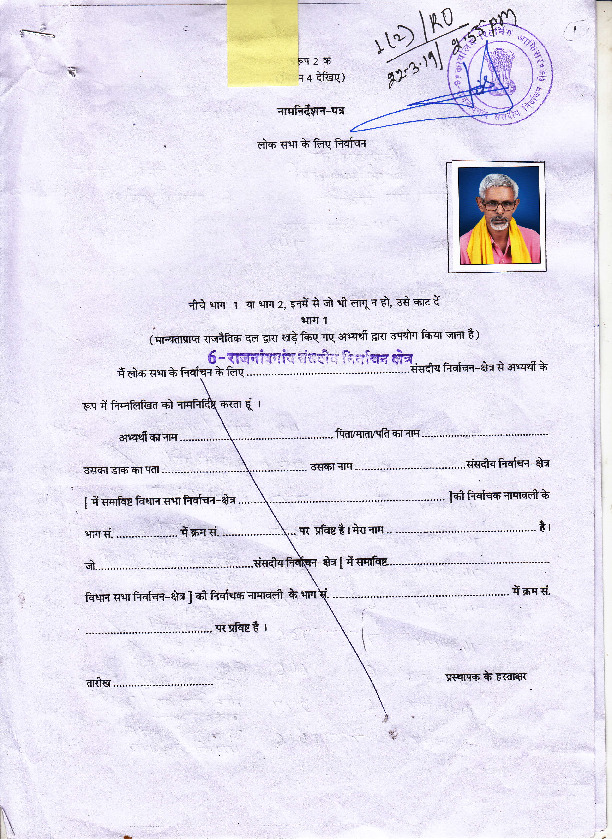 1(2)/RO
22-3-19/ 2:55 PM
1
रूप 2 क
न 4 देखिए)
नामनिर्देशन-पत्र
लोक सभा के लिए निर्वाचन
नीचे भाग 1 या भाग 2, इनमें से जो भी लागू न हो, उसे काट दें
भाग 1
(मान्यताप्राप्त राजनैतिक दल द्वारा खड़े किए गए अभ्यर्थी द्वारा उपयोग किया जाना है)
6-राजनांदगांव संसदीय निर्वाचन क्षेत्र
मैं लोक सभा के निर्वाचन के लिए ................................................ संसदीय निर्वाचन-क्षेत्र से अभ्यर्थी के
रूप में निम्नलिखित को नामनिर्दिष्ट करता हूं ।
अभ्यर्थी का नाम ................................................ पिता/माता/पति का नाम ................................................
उसका डाक का पता ................................................ उसका नाम ................................................ संसदीय निर्वाचन क्षेत्र
[ में समाविष्ट विधान सभा निर्वाचन-क्षेत्र ................................................ ]की निर्वाचक नामावली के
भाग सं. .................... में क्रम सं. ........................ पर प्रविष्ट है । मेरा नाम ................................................ है।
जो................................................संसदीय निर्वाचन क्षेत्र [ में समाविष्ट................................................
विधान सभा निर्वाचन-क्षेत्र ] की निर्वाचक नामावली के भाग सं. ................................................ में क्रम सं.
........................................ पर प्रविष्ट है ।
तारीख ................................ प्रस्थापक के हस्ताक्षर